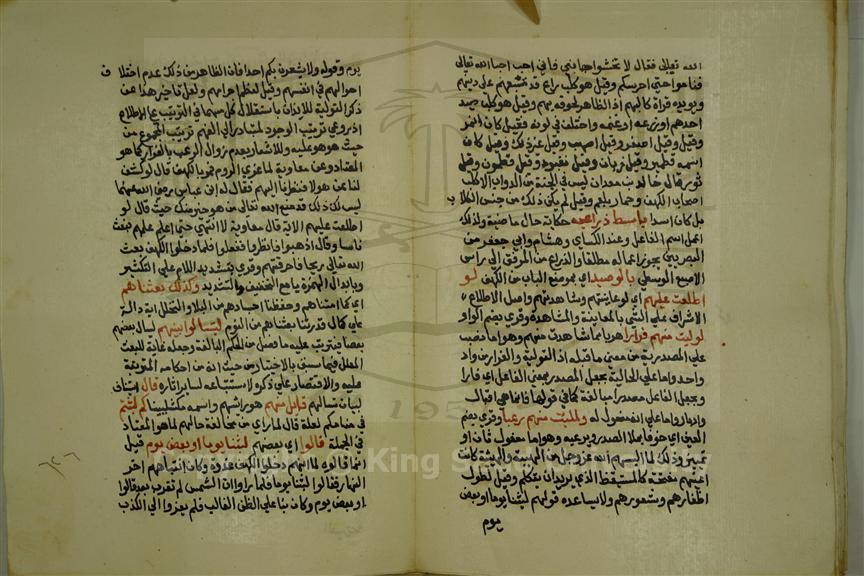 الله تعالى فقال لا تخشوا جانبي فاني احب احباء الله تعالى
فناموا حتى احرسكم وقيل هو كلب راع قد تبعهم على دينهم
ويؤيده قراءة كالبهم اذ الظاهر لحوقه بهم وقيل هو كلب صيد
احدهم او زرعه او غنمه واختلف في لونه فقيل كان انمر
وقيل وقيل اصفر وقيل اصهب وقيل غير ذلك وقيل كان
اسمه قطمير وقيل ريان وقيل وقيل قطمور وقيل
ثور قال خالد بن معدان ليس في الجنة من الدواب الا كلب
اصحاب الكهف وحمار بلعم وقيل لم يكن ذلك من جنس الكلاب
بل كان اسدا باسط ذراعيه حكاية حال ماضية ولذلك
اعمل اسم الفاعل وعند الكسائي وهشام وابي جعفر من
البصريين يجوز اعماله مطلقا والذراع من المرفق الى راس
الاصبع الوسطى بالوصيد اي بموضع الباب من الكهف لو
اطلعت عليهم اي لو عاينتهم وشاهدتهم واصل الاطلاع
الاشراف على الشيء بالمعاينة والمشاهدة وقرئ بضم الواو
لوليت منهم فرارا هربا مما شاهدت منهم وهو اما نصب
على المصدرية من معنى ما قبله اذ التولية والفرار من واد
واحد واما على الحالية بجعل المصدر بمعنى الفاعل اي فارا
وبجعل الفاعل مصدرا مبالغة كما في قولها فانما هي اقبال
وادبار واما على انه مفعول له ولملئت منهم رعبا وقرئ بضم
العين اي خوفا يملا الصدر ويرعبه وهو اما مفعول ثان او
تمييز وذلك لما البسهم الله عز وجل من الهيبة والهيئة كانت
اعينهم مفتحة كالمستيقظ الذي يريد ان يتكلم وقيل لطول
اظفارهم وشعورهم ولا يساعده قولهم لبثنا يوما او بعض
يوم
يوم وقوله ولا يشعرن بكم احدا فان الظاهر من ذلك عدم اختلاف
احوالهم في انفسهم وقيل لعظم اجرامهم ولعل تاخير هذا عن
ذكر التولية للايذان باستقلال كل منهما في الترتيب على الاطلاع
اذ روعي ترتيب الوجود لمتبادر الى الفهم ترتب المجموع من
حيث هو هو عليه وللاشعار بعدم زوال الرعب بالفرار كما هو
المعتاد وعن معاوية لما غزى الروم فمر بالكهف قال لو كشف
لنا عن هولا فنظرنا اليهم فقال له ابن عباس رضي الله عنهما
ليس لك ذلك قد منع الله تعالى من هو خير منك حيث قال لو
اطلعت عليهم الاية قال معاوية لا انتهي حتى اعلم علمهم فبعث
ناسا وقال اذهبوا فانظروا ففعلوا فلما دخلوا الكهف بعث
الله تعالى ريحا فاحرقتهم وقرئ بتشديد اللام على التكثير
وبابدال الهمزة ياء مع التخفيف والتشديد وكذلك بعثناهم
اي كما انمناهم وحفظنا اجسادهم من البلا والتحلل اية دالة
على كمال قدرتنا بعثناهم من النوم ليتسالوا بينهم ليسال بعضهم
بعضا فيترتب عليه ما فصل من الحكم البالغة وجعله غاية للبعث
المعلل فيما سبق بالاختبار من حيث انه من احكامه المترتبة
عليه والاقتصار على ذكره لاستتباعه لساير اثاره قال استئناف
لبيان تسالهم قايل منهم هو رئيسهم واسمه مكسلمينا كم لبثتم
في منامكم لعله قال لما راى من مخالفة حالهم لما هو المعتاد
في الجملة قالوا اي بعضهم لبثنا يوما او بعض يوم قيل
انما قالوه لما انهم دخلوا الكهف غدوة وكان انتباههم اخر
النهار فقالوا لبثنا يوما فلما راوا ان الشمس لم تغرب بعد قالوا
او بعض يوم وكان بنا على الظن الغالب فلم يعزوا الى الكذب
King